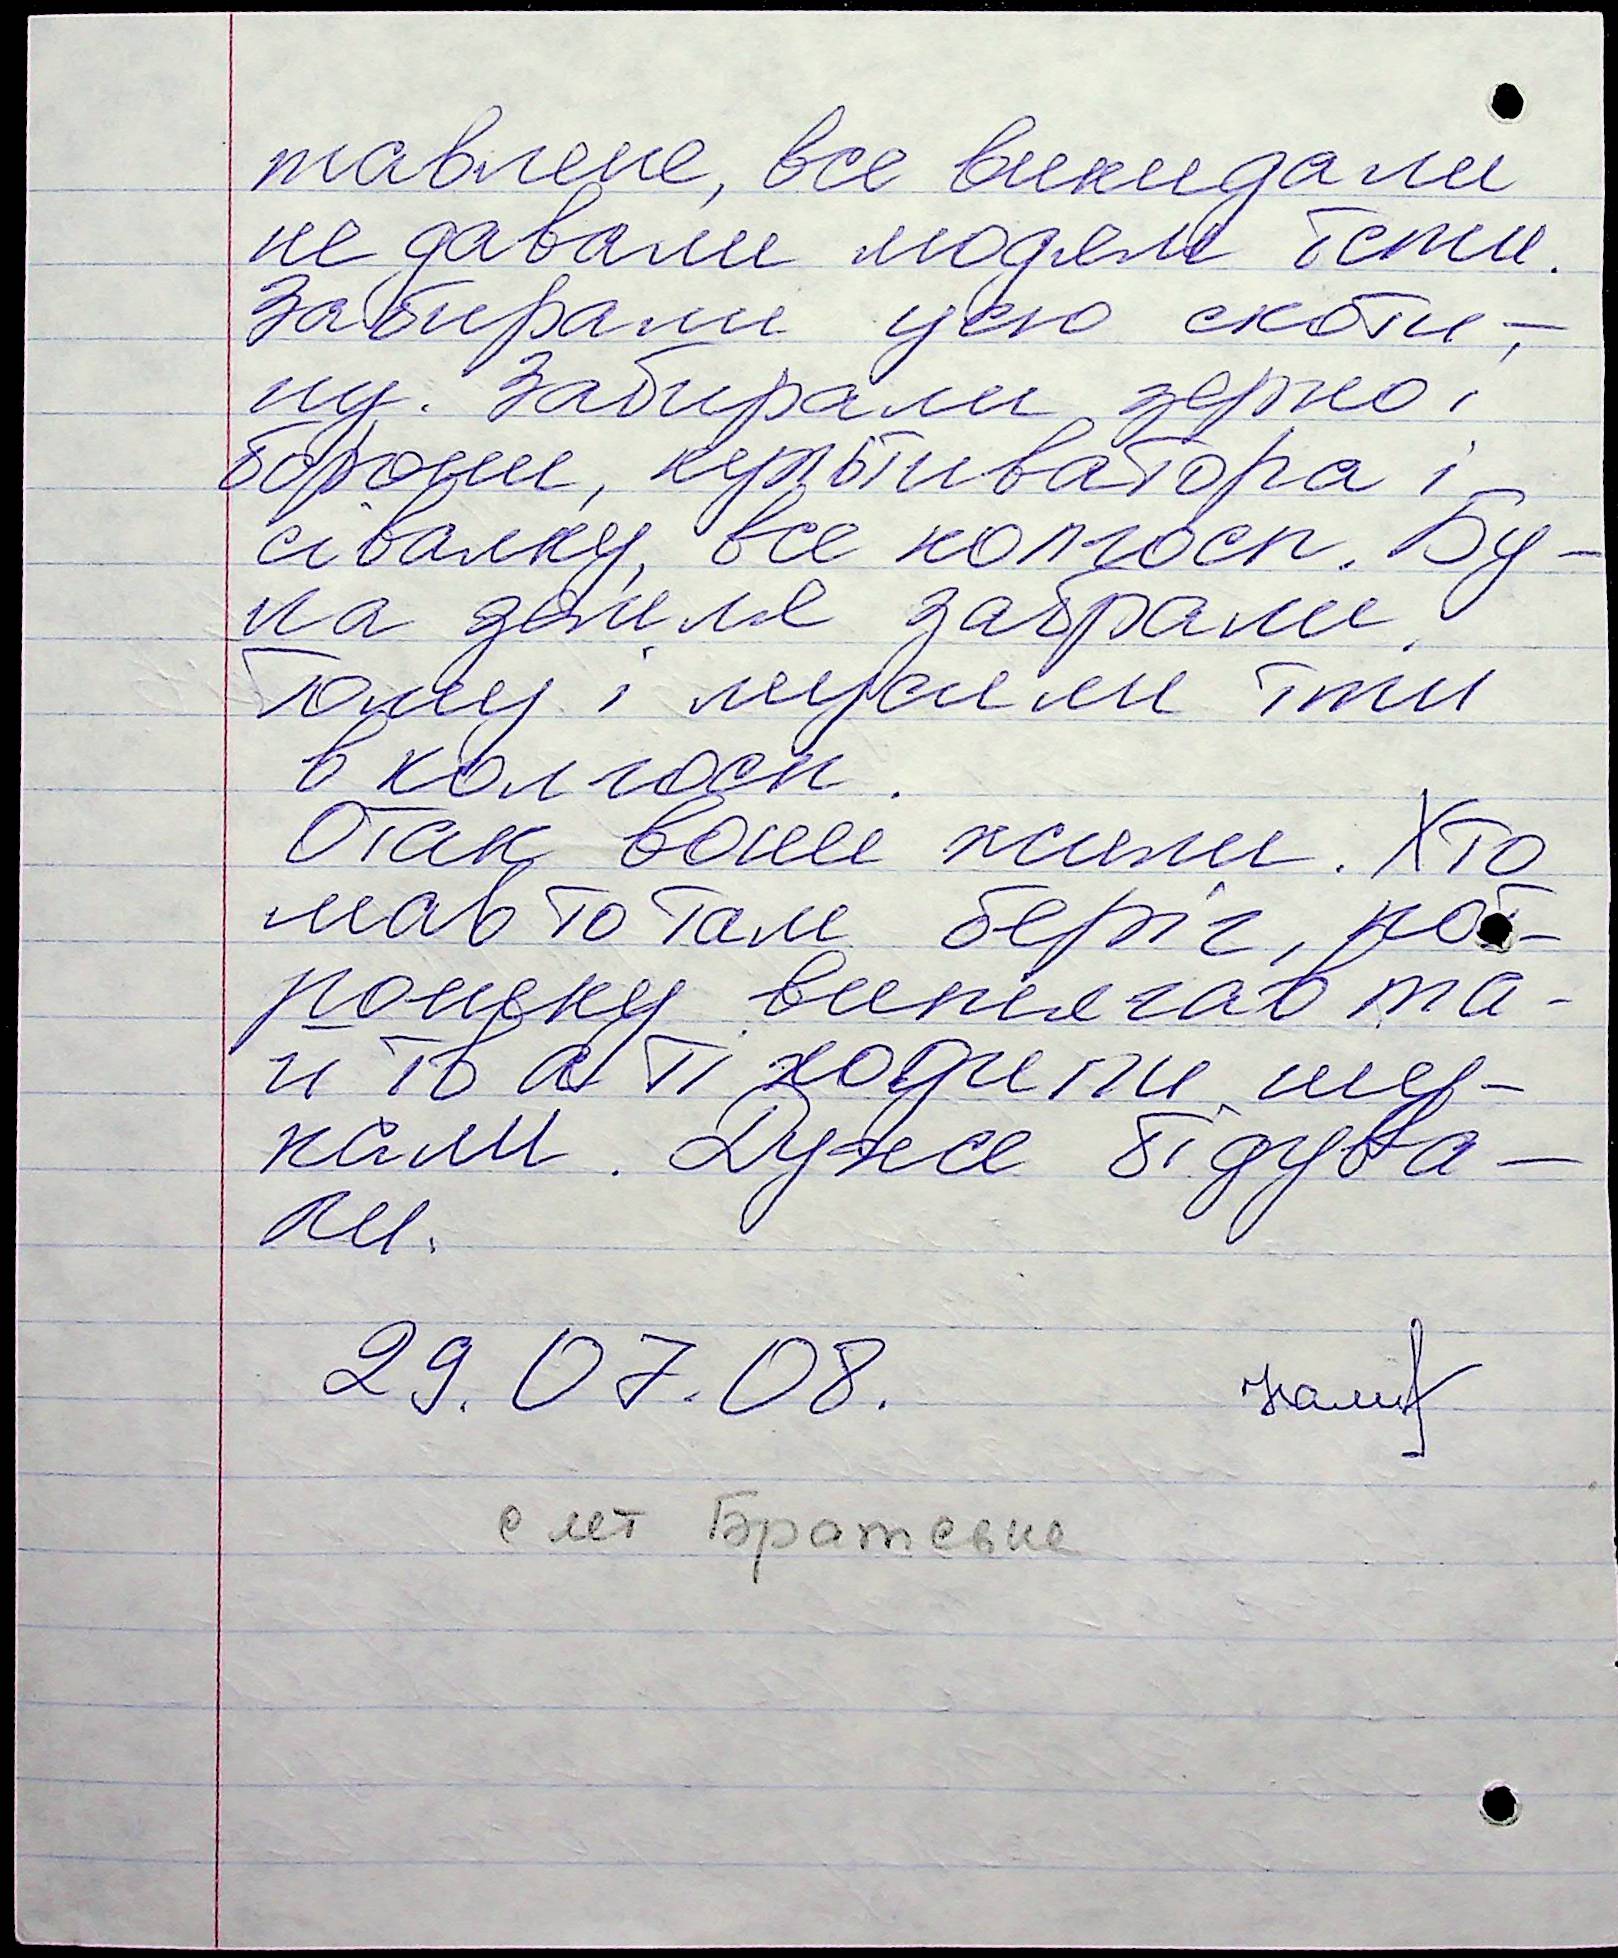 тавлене, все викидали
не давали людям їсти.
Забирали усю скоти-
ну. Забирали зерно і
борони, культиватора і
сівалку, все колгосп. Бу-
ла земля забрали.
Тому і мусили іти
в колгосп.
Отак вони жили. Хто
мав то там беріг, коб
випікав та-
и їв а ті ходили шу-
кали. Дуже бідува-
ли.
29.07.08.
смт Братське